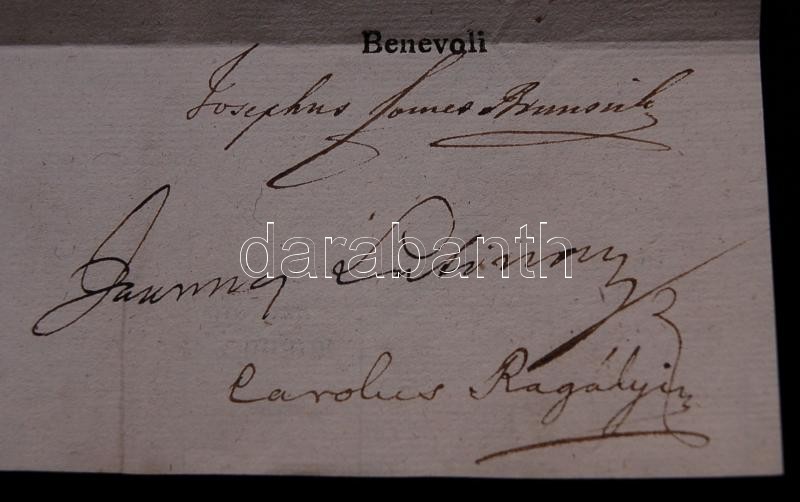 Benevoli
Josephus Comes Brunsvik
darabanth
Carolus Ragályi